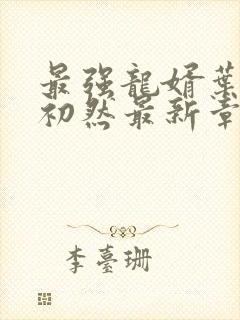 最强龍婿葉
初然最新章
李臺珊